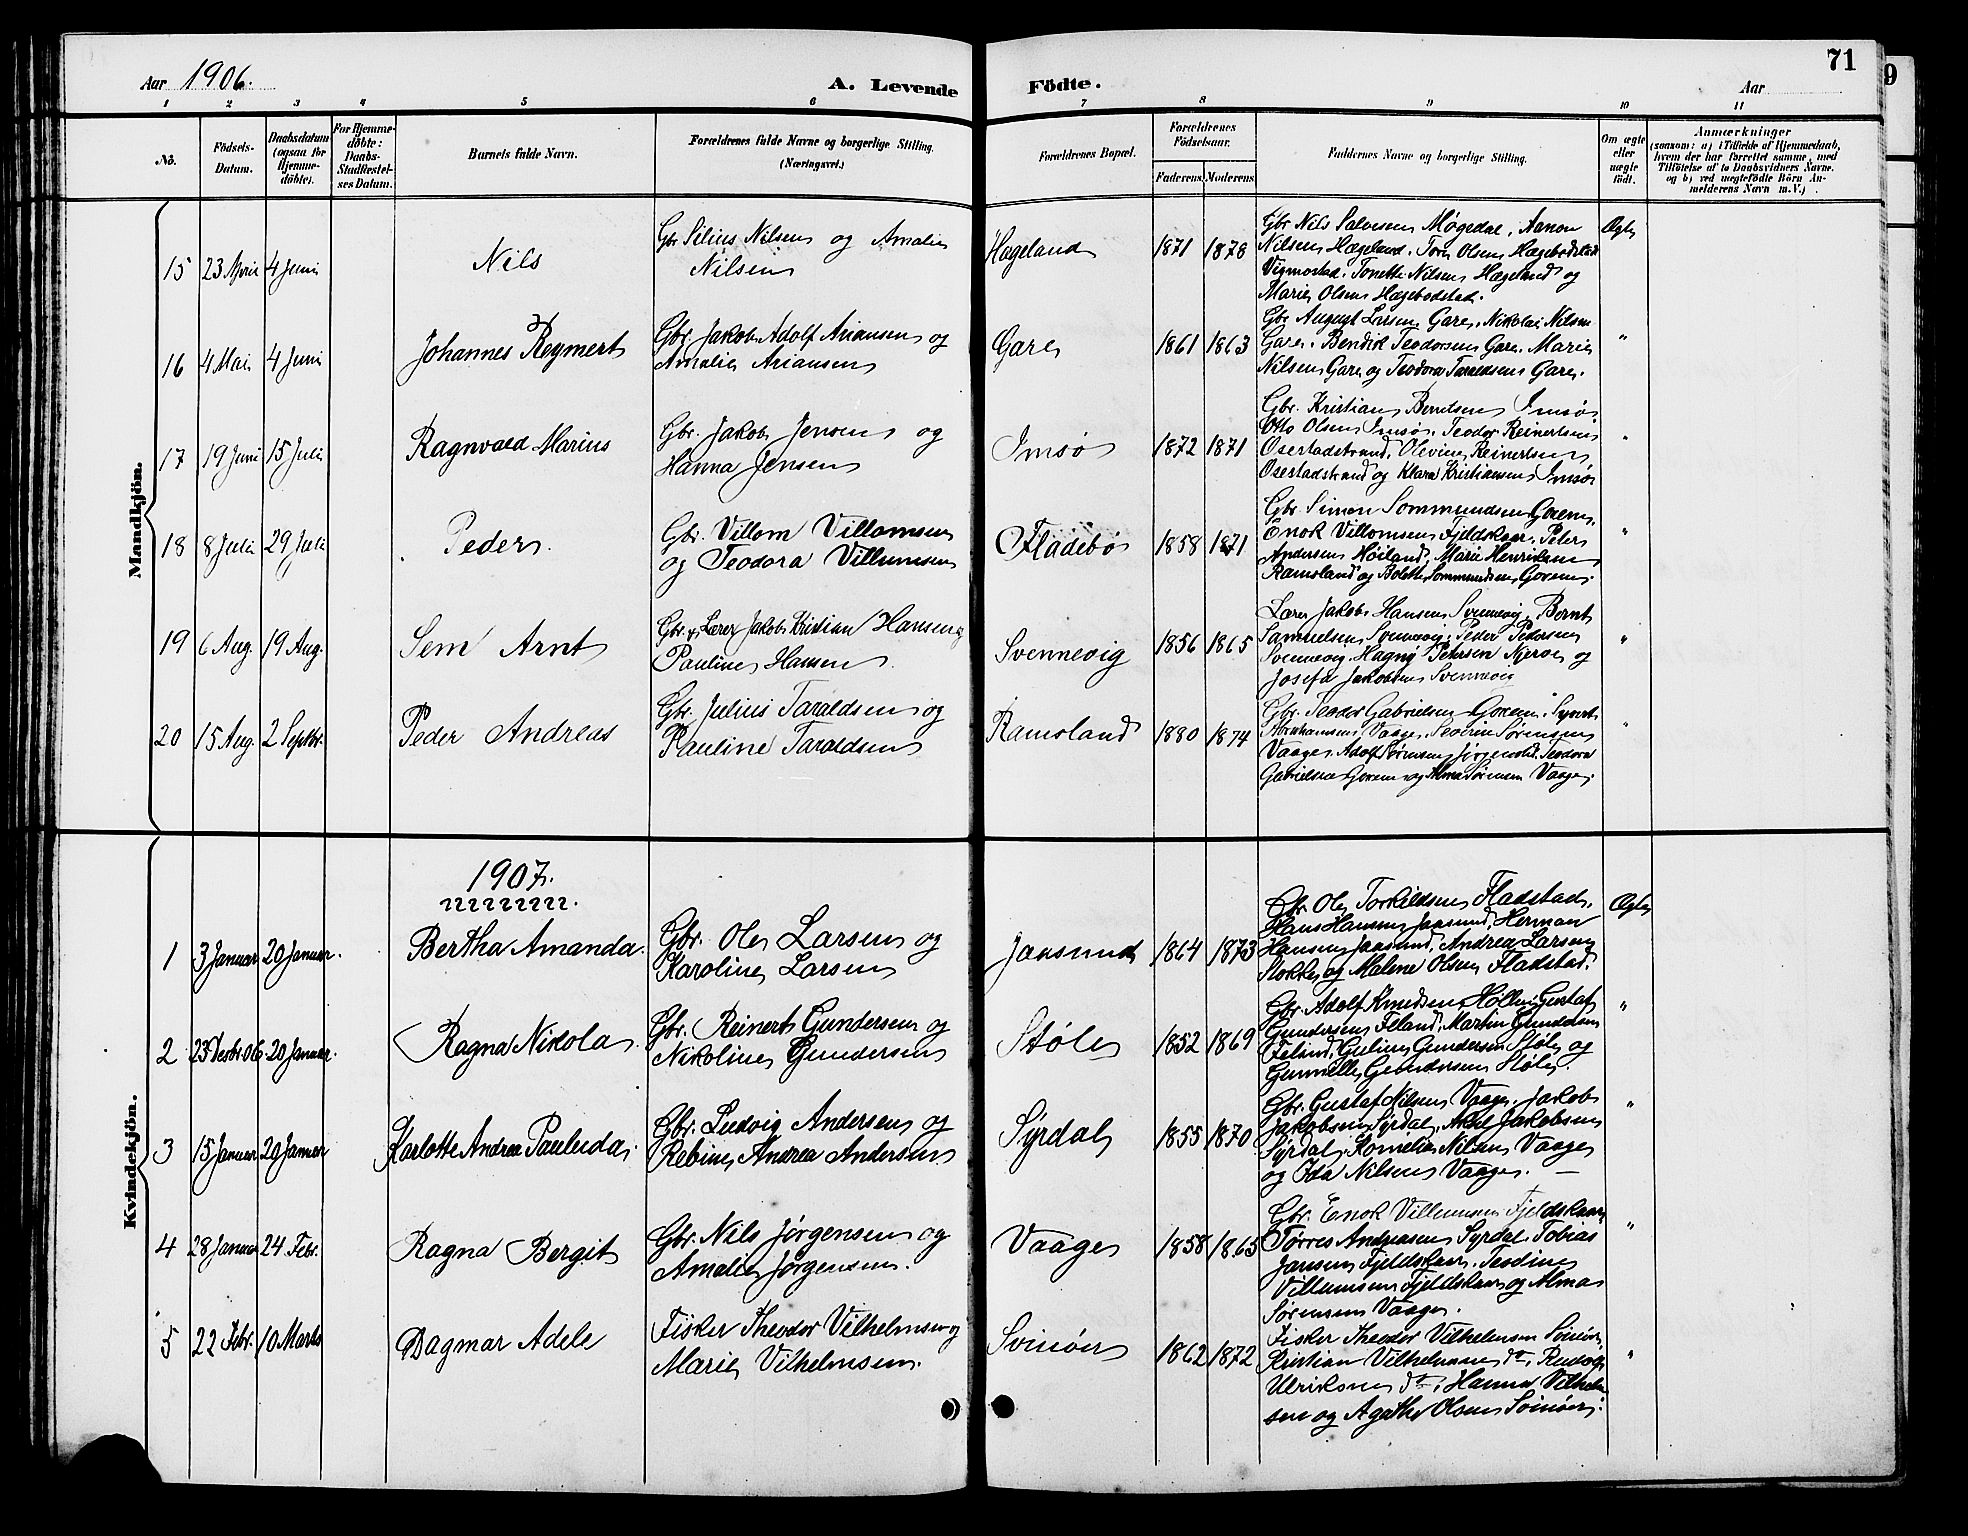 71
9
Aar 1906.
A. Levende Födte.
Aar
1 2 3 4 5 6 7 8 9 10 11
No.
Födsels-Datum.
Daabsdatum (ogsaa for Hjemme-döbte).
For Hjemme-döbte: Daabs-Stadfæstel-ses Datum.
Barnets fulde Navn.
Forældrenes fulde Navne og borgerlige Stilling. (Næringsvei.)
Forældrenes Bopæl.
Forældrenes Födselsaar.
Faderens. Moderens.
Faddernes Navne og borgerlige Stilling.
Om ægte eller uægte födt.
Anmærkninger
(saasom: a) i Tilfælde af Hjemmedaab, hvem der har forrettet samme, med Tilföielse af to Daabsvidners Navne, og b) ved uægtefödte Börn An-melderens Navn m.V.)
Mandkjön.
15 23 April 4 Juni
Nils
Gbr Silius Nilsen og Amalie
Nilsen
Hageland
1871 1878
Gbr Nils Salvesen Møgedal, Aanon
Nilsen Hægeland, Tore Olsen Hægebodstad
Vigmostad, Tonette Nilsen Hægeland og
Marie Olsen Hægebodstad.
Ægte
16 4 Mai 4 Juni
Johannes Reymert
Gbr. Jakob Adolf Ariansen og
Amalie Ariansen
Gare
1861 1863
Gbr August Larsen Gare, Nikolai Nilsen
Gare, Bendik Teodorsen Gare, Marie
Nilsen Gare og Teodora Taraldsen Gare.
"
17 19 Juni 15 Juli
Ragnvald Marius
Gbr. Jakob Jensen og
Hanna Jensen
Imsø
1872 1871
Gbr. Kristian Berntsen Imsø
Otto Olsen Imsø, Teodor Reinertsen
Osestadstrand, Olevine Reinertsen
Osestadstrand og Klara Kristiansen Imsø
"
18 8 Juli 29 Juli
Peder
Gbr. Villom Villomsen
og Teodora Villumsen
Fladebø
1858 1871
Gbr Simon Sommundsen Goren,
Enok Villomsen Fjeldskaar, Peter
Andersen Høiland, Marie Henriksen
Ramsland og Bolette Sommundsen Goren.
"
19 6 Aug. 19 Aug.
Sem Arnt
Gbr. & Lærer Jakob Kristian Hansen og
Pauline Hansen
Svennevig
1856 1865
Lærer Jakob Hansen Svennevig, Bernt
Samuelsen Svennevig, Peder Pedersen
Svennevig, Hagny Petersen Njerve og
Josefa Jakobsen Svennevig
"
20 15 Aug. 2 Septbr.
Peder Andreas
Gbr. Julius Taraldsen og
Pauline Taraldsen
Ramsland
1880 1874
Gbr. Teodor Gabrielsen Goren, Syvert
Abrahamsen Vaage, Severin Sørensen
Vaage, Adolf Sørensen Jørgenstad, Teodora
Gabrielsen Goren og Alma Sørensen Vaage.
"
Kvindekjön.
1907.
1 3 Januar 20 Januar.
Bertha Amanda.
Gbr. Ole Larsen og
Karoline Larsen
Jaasund
1864 1873
Gbr. Ole Torkildsen Fladstad,
Hans Hansen Jaasund, Herman
Hansen Jaasund, Andrea Larsen
Stokke og Malene Olsen Fladstad.
Ægte
2 23 Desbr. 06. 20 Januar.
Ragna Nikola.
Gbr. Reinert Gundersen og
Nikoline Gundersen
Støle
1852 1869
Gbr. Adolf Knudsen Hollen, Gustaf
Gundersen Feland, Martin Gundersen
Feland, Guline Gundersen Støle og
Gunnelle Gundersen Støle.
"
3 15 Januar 20 Januar
Karlotte Andrea Paulinda.
Gbr. Ludvig Andersen og
Rebine Andrea Andersen
Syrdal
1855 1870
Gbr. Gustaf Nilsen Vaage, Jakob
Jakobsen Syrdal, Aksel Jakobsen
Syrdal, Kornelia Nilsen Vaage
og Ida Nilsen Vaage.
"
4 28 Januar 24 Febr.
Ragna Bergit
Gbr. Nils Jørgensen og
Amalie Jørgensen.
Vaage
1858 1865
Gbr. Enok Villumsen Fjeldskaar,
Tørres Andreasen Syrdal, Tobias
Jansen Fjeldskaar, Teodine
Villumsen Fjeldskaar og Alma
Sørensen Vaage.
"
5 22 Febr. 10 Marts
Dagmar Adele
Fisker Theodor Vilhelmsen og
Marie Vilhelmsen.
Svinør
1862 1872
Fisker Theodor Vilhelmsen Svinør,
Kristian Vilhelmsen do, Rudolf
Ulriksen do, Hanna Vilhelm
sen og Agathe Olsen Svinør.
"